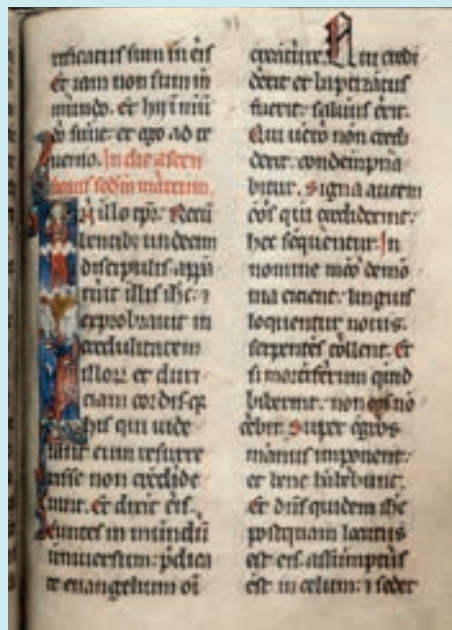 rificatus sum in eis
Et iam non sum in
mundo. et hij ī mū
do sunt: et ego ad te
uenio. In die ascen
sionis scdm marcum.
In illo tpr. Recū
bentibz undecim
discipulis appa
ruit illis ihc: ⁊
exprobrauit in
credulitatem
illoꝝ et duri
ciam cordis: qꝛ
his qui uide
rant eum resurre
xisse non credide
runt. Et dixit eis.
Euntes in mundū
uniuersum: p̄dica
te euangelium oī
creature. Qui credi
derit et baptizatus
fuerit: saluus erit.
Qui uero non credi
derit. condempna
bitur. Signa autem
eos qui crediderint:
hec sequentur. In
nomine meo demo
nia eicient. linguis
loquentur nouis.
serpentes tollent. Et
si mortiferum quid
biberint: non eos no
cebit. Super egros
manus imponent:
et bene habebunt.
Et dn̄s quidem ihc
postquam locutus
est eis. assumptus
est in celum: ⁊ sedet